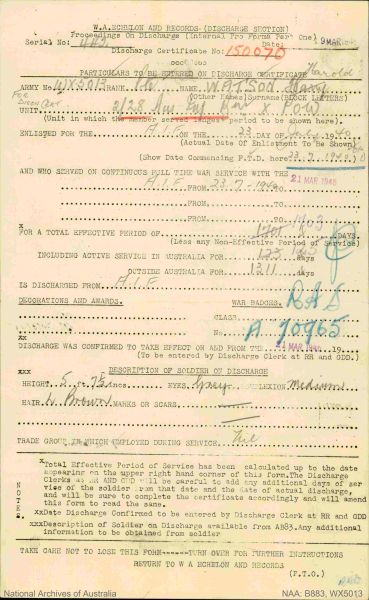 W.A.ECHELON AND RECORDS (DISCHARGE SECTION)
Proceedings On Discharge (Internal Pro Forma Per One)
Serial No: Date: 19 MAR
Discharge Certificate No: 150070
PARTICULARS TO BE ENTERED ON DISCHARGE CERTIFICATE
Harold
ARMY NO. WX5013 RANK Pte. WATSON Harry
(Other Names) Surname (BLOCK LETTERS)
UNIT 2/28 Aus Inf Bn
(Unit in which the member served longest period to be shown here).
ENLISTED FOR THE A.I.F ON THE 23 DAY OF July 19 40
(Actual Date Of Enlistment To Be Shown)
(Show Date Commencing F.T.D. here) 23.7.1940.)
AND WHO SERVED ON CONTINUOUS FULL TIME WAR SERVICE WITH THE
21 MAR 1945
A.I.F FROM 23-7-1940
FROM
FROM TO
x
FOR A TOTAL EFFECTIVE PERIOD OF 1703 DAYS.
(Less any Non-Effective Period of Service)
INCLUDING ACTIVE SERVICE IN AUSTRALIA FOR days
OUTSIDE AUSTRALIA FOR 1211 days
IS DISCHARGED FROM A.I.F
DECORATIONS AND AWARDS. WAR BADGES. RAS
CLASS
No. A 70965
xx
DISCHARGE WAS CONFIRMED TO TAKE EFFECT ON AND FROM THE 21 MAR 19
(To be entered by Discharge Clerk at RR and GDD.)
xxx DESCRIPTION OF SOLDIER ON DISCHARGE
HEIGHT. 5 ft 7½ ins EYES. Grey COMPLEXION Medium
HAIR. L Brown MARKS OR SCARS.
TRADE GROUP IN WHICH EMPLOYED DURING SERVICE. Nil
NOTES
xTotal Effective Period of Service has been calculated up to the date
appearing on the upper right hand corner of this form. The Discharge
Clerks at RR AND GDD will be careful to add any additional days of ser
vice of the soldier from that date and the date of actual discharge,
and will be sure to complete the certificate accordingly and will amend
this form to read the same.
xxDate Discharge Confirmed to be entered by Discharge Clerk at RR and GDD
xxxDescription of Soldier on Discharge available from AB83. Any additional
information to be obtained from soldier
TAKE CARE NOT TO LOSE THIS FORM-----TURN OVER FOR FURTHER INSTRUCTIONS
RETURN TO W A ECHELON AND RECORDS
(P.T.O.)
National Archives of Australia NAA: B883, WX5013